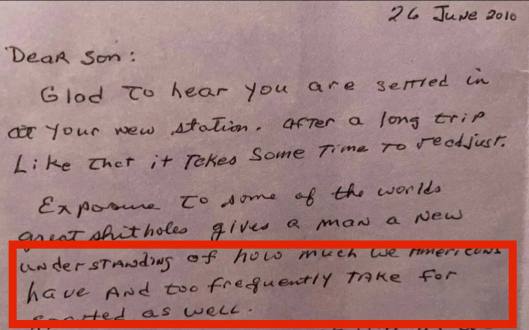 26 June 2010
Dear Son:
Glad to hear you are settled in
at your new station. After a long trip
Like that it takes some time to readjust.
Exposure to some of the worlds
great shitholes gives a man a new
understanding of how much we Americans
have and too frequently take for
granted as well.